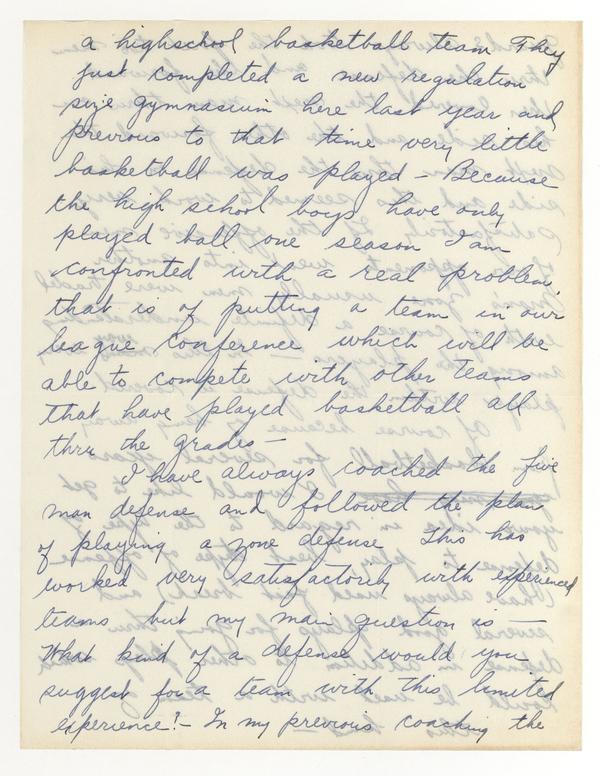 a highschool basketball team They
just completed a new regulation
size gymnasium here last year and
previous to that time very little
basketball was played - Because
the high school boys have only
played ball one season I am
confronted with a real problem,
that is of putting a team in our
league conference which will be
able to compete with other teams
that have played basketball all
thru the grades -
I have always coached the five
man defense and followed the plan
of playing a zone defense This has
worked very satisfactorily with experienced
teams but my main question is -
What kind of a defense would you
suggest for a team with this limited
experience? - In my previous coaching the